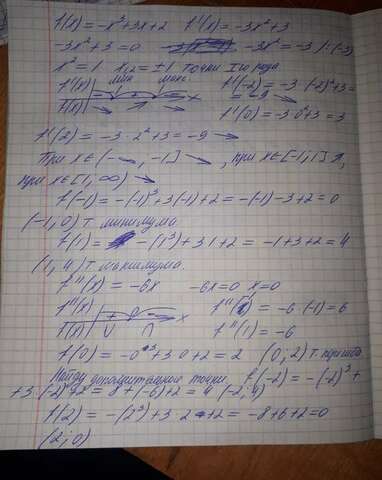 f(x) = -x³+3x+2   f'(x) = -3x²+3
-3x²+3=0   -3x² = -3 | :(-3)
x² = 1   x₁,₂ = ±1 точки I го рода
f'(x)   мин   макс   f'(-2) = -3·(-2)²+3 =
f(x)   x   = -9 ↘
f'(0) = -3·0²+3 = 3
f'(2) = -3·2²+3 = -9 ↘
При x∈(-∞, -1] ↘, при x∈[-1;1] ↗,
при x∈[1, ∞) ↘
f(-1) = -(-1)³+3(-1)+2 = -(-1)-3+2 = 0
(-1, 0) т. минимума
f(1) = -(1³)+3·1+2 = -1+3+2 = 4
(1, 4) т. максимума.
f''(x) = -6x   -6x=0   x=0
f''(x)   + 0 -   x   f''(-1) = -6·(-1) = 6
f(x)   ∪   ∩   f''(1) = -6
f(0) = -0³+3·0+2 = 2   (0; 2) т. перегиба
Найду дополнительные точки, f(-2) = -(-2)³+
+3·(-2)+2 = 8+(-6)+2 = 4 (-2; 4)
f(2) = -(2³)+3·2+2 = -8+6+2=0
(2; 0)